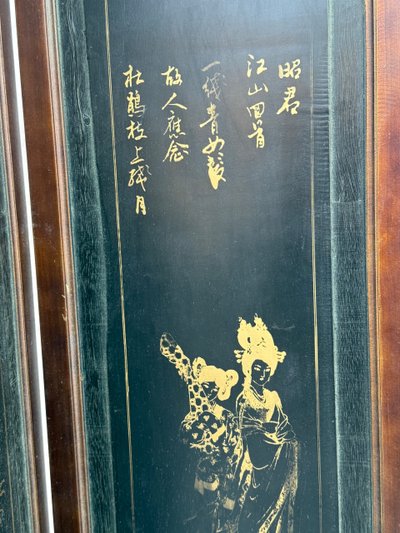 昭君
江山回首
一线青如发
故人应念
杜鹃枝上残月